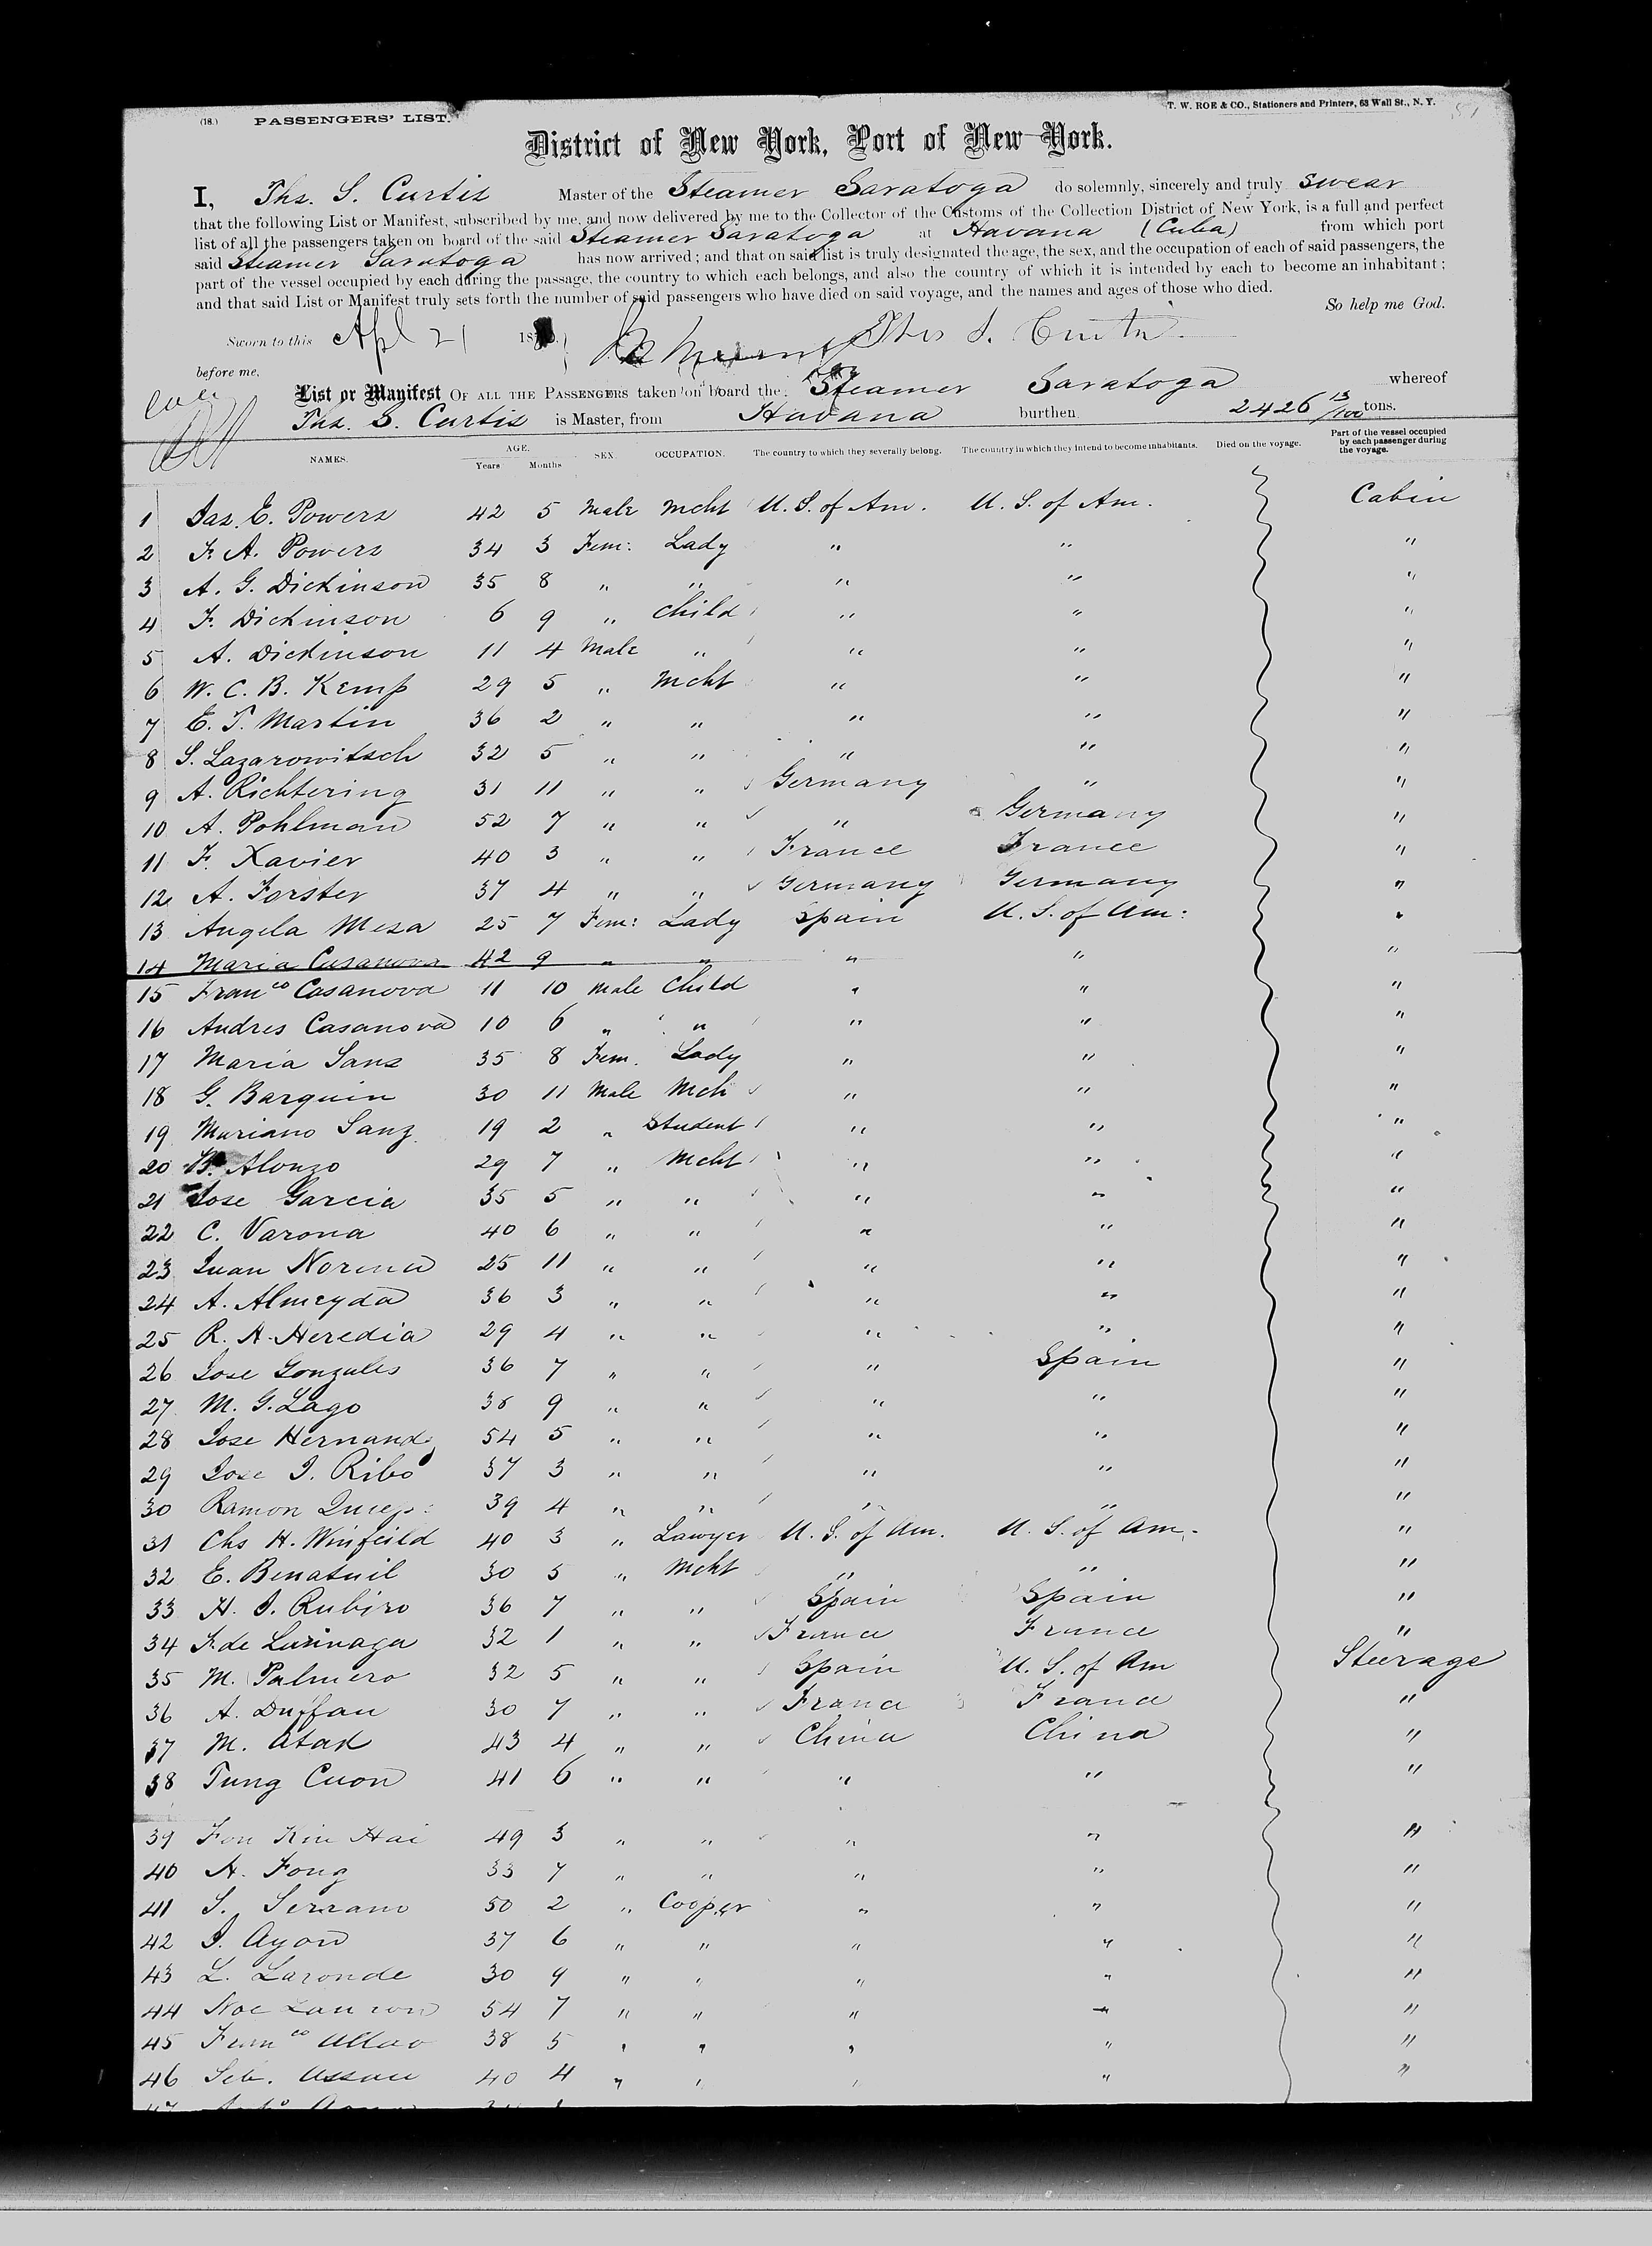 (18.) PASSENGERS' LIST.
T. W. ROE & CO., Stationers and Printers, 63 Wall St., N. Y.
District of New York, Port of New York.
I, Ths. S. Curtis Master of the Steamer Saratoga do solemnly, sincerely and truly swear
that the following List or Manifest, subscribed by me, and now delivered by me to the Collector of the Customs of the Collection District of New York, is a full and perfect
list of all the passengers taken on board of the said Steamer Saratoga at Havana (Cuba) from which port
said Steamer Saratoga has now arrived; and that on said list is truly designated the age, the sex, and the occupation of each of said passengers, the
part of the vessel occupied by each during the passage, the country to which each belongs, and also the country of which it is intended by each to become an inhabitant;
and that said List or Manifest truly sets forth the number of said passengers who have died on said voyage, and the names and ages of those who died.
So help me God.
Sworn to this Apl 21 18 Thos S. Curtis
before me,
List or Manifest OF ALL THE PASSENGERS taken on board the Steamer Saratoga whereof
Ths. S. Curtis is Master, from Havana burthen 2426 13/100 tons.
NAMES. AGE. Years Months SEX. OCCUPATION. The country to which they severally belong. The country in which they intend to become inhabitants. Died on the voyage. Part of the vessel occupied by each passenger during the voyage.
1 Jas. E. Powers 42 5 Male Mcht U. S. of Am. U. S. of Am. Cabin
2 F. A. Powers 34 3 Fem: Lady " " "
3 A. G. Dickinson 35 8 " " " " "
4 F. Dickinson 6 9 " Child " " "
5 A. Dickinson 11 4 Male " " " "
6 W. C. B. Kemp 29 5 " Mcht " " "
7 E. T. Martin 36 2 " " " " "
8 S. Lazarowitsch 32 5 " " " " "
9 A. Richtering 31 11 " " Germany " "
10 A. Pohlman 52 7 " " " Germany "
11 F. Xavier 40 3 " " France France "
12 A. Forster 37 4 " " Germany Germany "
13 Angela Mesa 25 7 Fem: Lady Spain U. S. of Am: "
14 Maria Casanova 42 9 " " " " "
15 Franco Casanova 11 10 Male Child " " "
16 Andres Casanova 10 6 " " " " "
17 Maria Sans 35 8 Fem. Lady " " "
18 G. Barquin 30 11 Male Mch " " "
19 Mariano Sanz 19 2 " Student " " "
20 B. Alonzo 29 7 " Mcht " " "
21 Jose Garcia 35 5 " " " " "
22 C. Varona 40 6 " " " " "
23 Juan Norena 25 11 " " " " "
24 A. Almeyda 36 3 " " " " "
25 R. A. Heredia 29 4 " " " " "
26 Jose Gonzales 36 7 " " " Spain "
27 M. G. Lago 38 9 " " " " "
28 Jose Hernandz 54 5 " " " " "
29 Jose J. Ribo 37 3 " " " " "
30 Ramon 39 4 " " " " "
31 Chs H. Winfeild 40 3 " Lawyer U. S. of Am. U. S. of Am. "
32 E. Benatuil 30 5 " Mcht " " "
33 H. J. Rubiro 36 7 " " Spain Spain "
34 F. de Lurinaga 32 1 " " France France "
35 M. Palmero 32 5 " " Spain U. S. of Am Steerage
36 A. Duffau 30 7 " " France France "
37 M. Atak 43 4 " " China China "
38 Tung Cuon 41 6 " " " " "
39 Fon Kin Hai 49 3 " " " " "
40 A. Fong 33 7 " " " " "
41 S. Serrano 50 2 " Cooper " " "
42 J. Ayon 37 6 " " " " "
43 L. Laronde 30 9 " " " " "
44 Noe 54 7 " " " " "
45 Franco 38 5 " " " " "
46 Seb. Assau 40 4 " " " " "
47